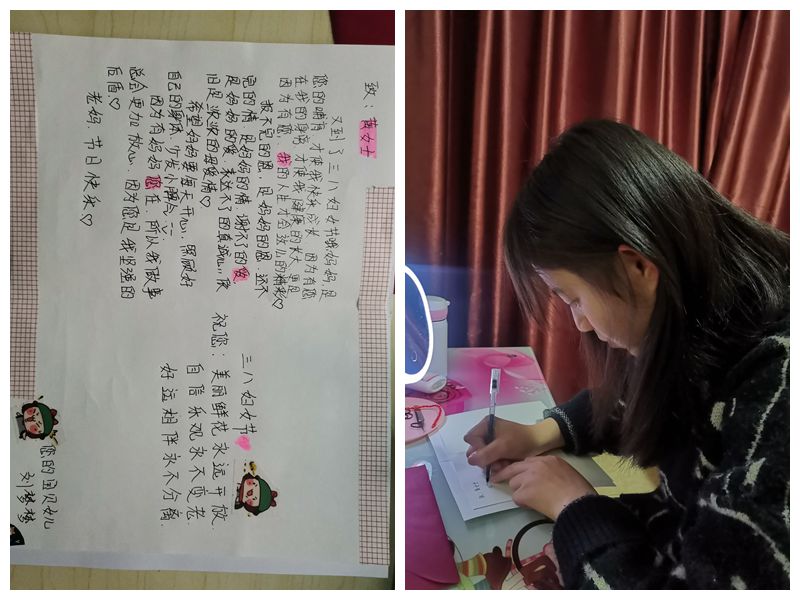 致：黄女士
又到了三八妇女节哦，妈妈，是
您的哺育，才使我快乐成长，因为有您
在我的身旁，才使我健康的长大，更是
因为有您，我的人生才会这么的精彩♡
报不完的恩，是妈妈的恩，还不
完的情，是妈妈的情，谢不了的爱，
是妈妈的爱，表达不了的真诚心，依
旧是浓浓的母爱情♡
希望妈妈要每天开心，照顾好
自己的身体，少发小脾气
因为有妈妈您在，所以我做事
总会更加放心，因为您是我坚强的
后盾♡
老妈，节日快乐♡
三八妇女节
祝您：美丽鲜花永远开放.
自信乐观永不变老.
好运相伴永不分离.
您的宝贝女儿
刘梦梦